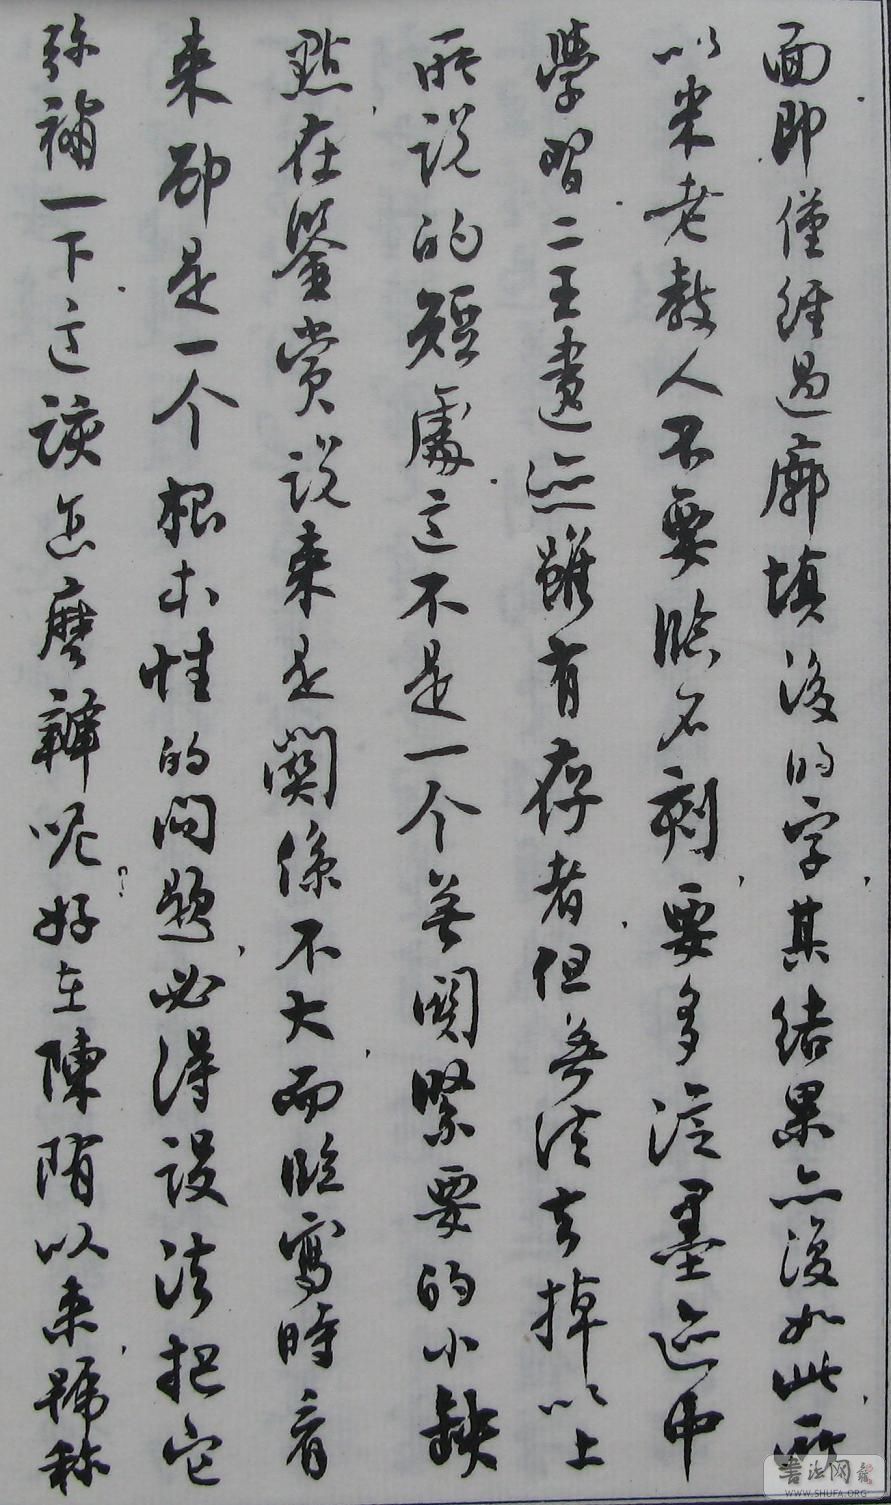 面即僅經過廓填後的字，其結果亦復如此，所
以米老教人不要臨名刻，要多從墨迹中
學習。二王遺迹雖有存者，但無法去掉以上
所說的短處，這不是一个無關緊要的小缺
點，在鑒賞說來是關係不大，而臨寫時看
来却是一个根本性的问題，必得設法把它
弥補一下。這該怎麼辦呢？好在陳隋以来，號称
書法网
WWW.SHUFA.ORG